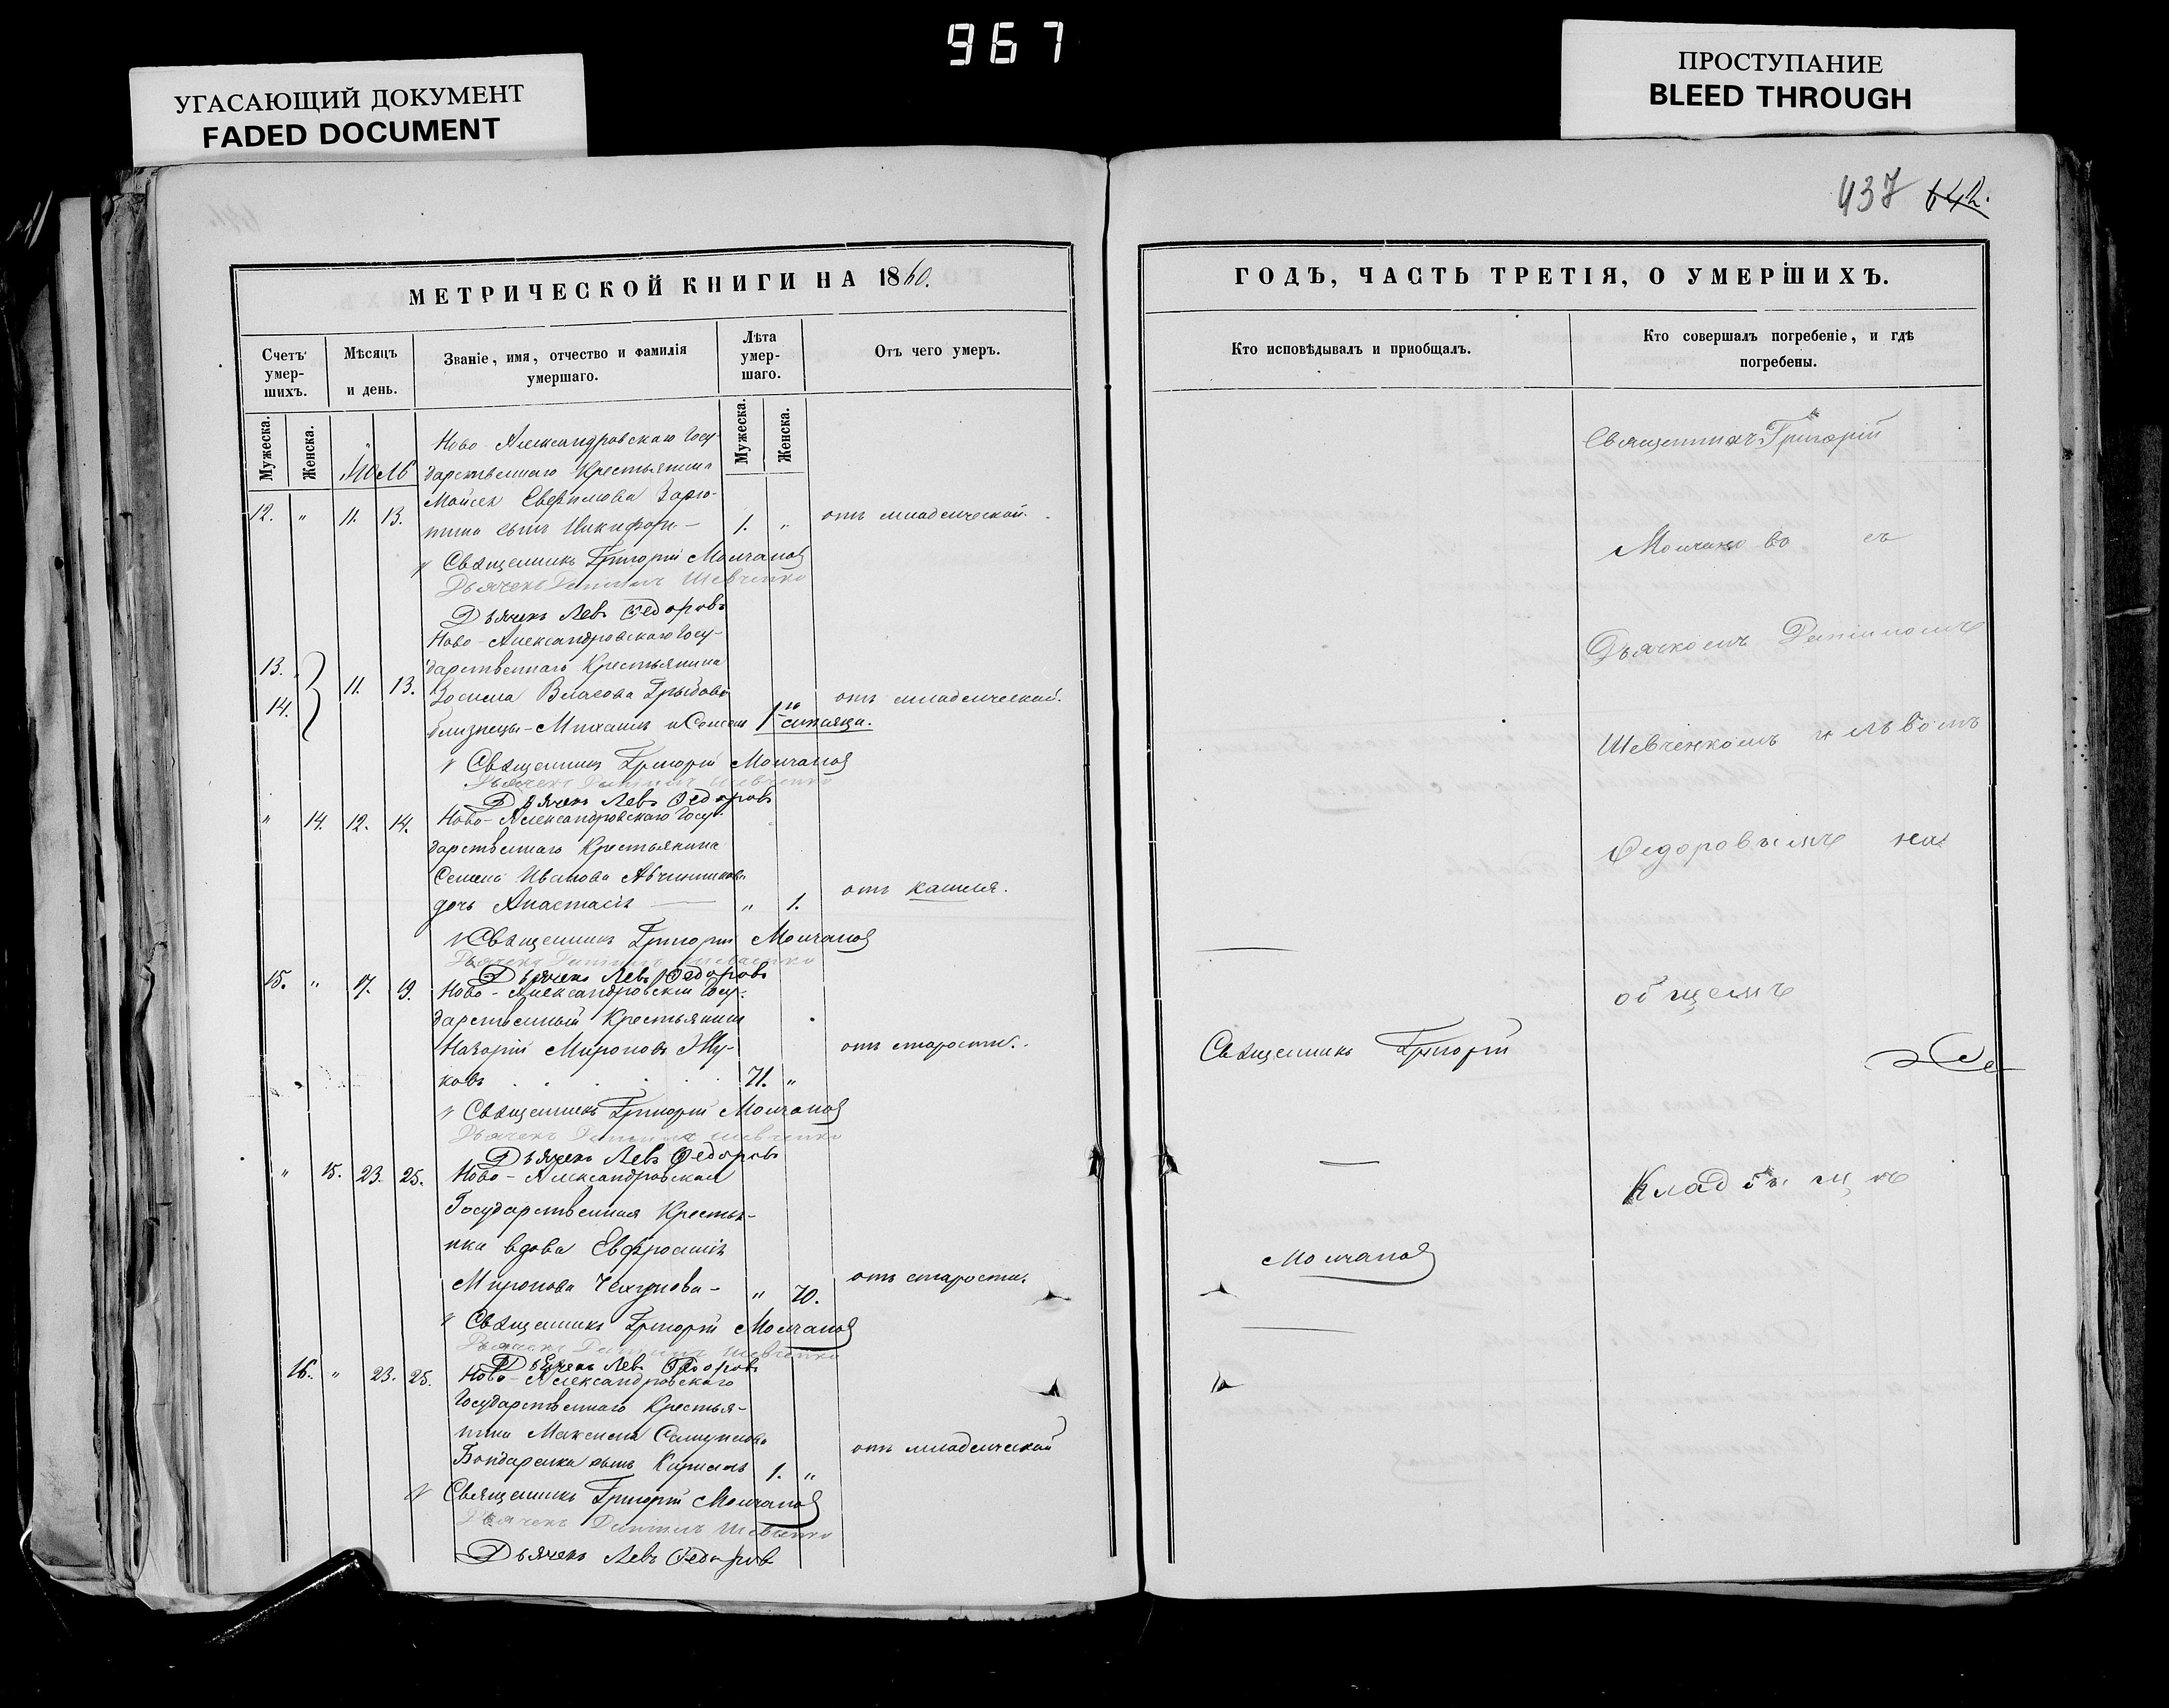 967
УГАСАЮЩИЙ ДОКУМЕНТ
FADED DOCUMENT
ПРОСТУПАНИЕ
BLEED THROUGH
437 642.
МЕТРИЧЕСКОЙ КНИГИ НА 1860.
Счетъ умершихъ.
Мѣсяцъ и день.
Званіе, имя, отчество и фамилія умершаго.
Лѣта умершаго.
Отъ чего умеръ.
Мужеска.
Женска.
Мужеска.
Женска.
Ново-Александровскаго Госу-
дарственнаго Крестьянина
Моисея
12. " 11. 13. сынъ Никифоръ — 1. " отъ младенческой.
Священникъ Григорій Молчановъ
Дьячекъ Даніилъ Шевченко
Дьячекъ Левъ Ѳедоровъ
Ново-Александровскаго Госу-
13. дарственнаго Крестьянина
11. 13. Власова
14. близнецы - Михаилъ и Семенъ 1 отъ младенческой.
Священникъ Григорій Молчановъ
Дьячекъ Даніилъ Шевченко
Дьячекъ Левъ Ѳедоровъ
" 14. 12. 14. Ново-Александровскаго Госу-
дарственнаго Крестьянина
Семена Иванова
дочь Анастасія — " 1. отъ кашля.
Священникъ Григорій Молчановъ
Дьячекъ Даніилъ Шевченко
Дьячекъ Левъ Ѳедоровъ
15. " 17. 19. Ново-Александровскій Госу-
дарственный Крестьянинъ
Назарій Мироновъ Жу-
ковъ 71. " отъ старости.
Священникъ Григорій Молчановъ
Дьячекъ Даніилъ Шевченко
Дьячекъ Левъ Ѳедоровъ
" 15. 23. 25. Ново-Александровская
Государственная Крестья-
нка вдова Евфросинія
Миронова - " 70. отъ старости.
Священникъ Григорій Молчановъ
Дьячекъ Даніилъ Шевченко
Дьячекъ Левъ Ѳедоровъ
16. " 23. 25. Ново-Александровскаго
Государственнаго Крестья-
нина Максима
Бондаренка сынъ 1. " отъ младенческой
Священникъ Григорій Молчановъ
Дьячекъ Даніилъ Шевченко
Дьячекъ Левъ Ѳедоровъ
ГОДЪ, ЧАСТЬ ТРЕТІЯ, О УМЕРШИХЪ.
Кто исповѣдывалъ и приобщалъ.
Кто совершалъ погребеніе, и гдѣ погребены.
Священникъ Григорій
Молчановъ съ
Дьячкомъ Даніиломъ
Шевченкомъ и Львомъ
Ѳедоровымъ на
общемъ
Священникъ Григорій
кладбищѣ
Молчановъ